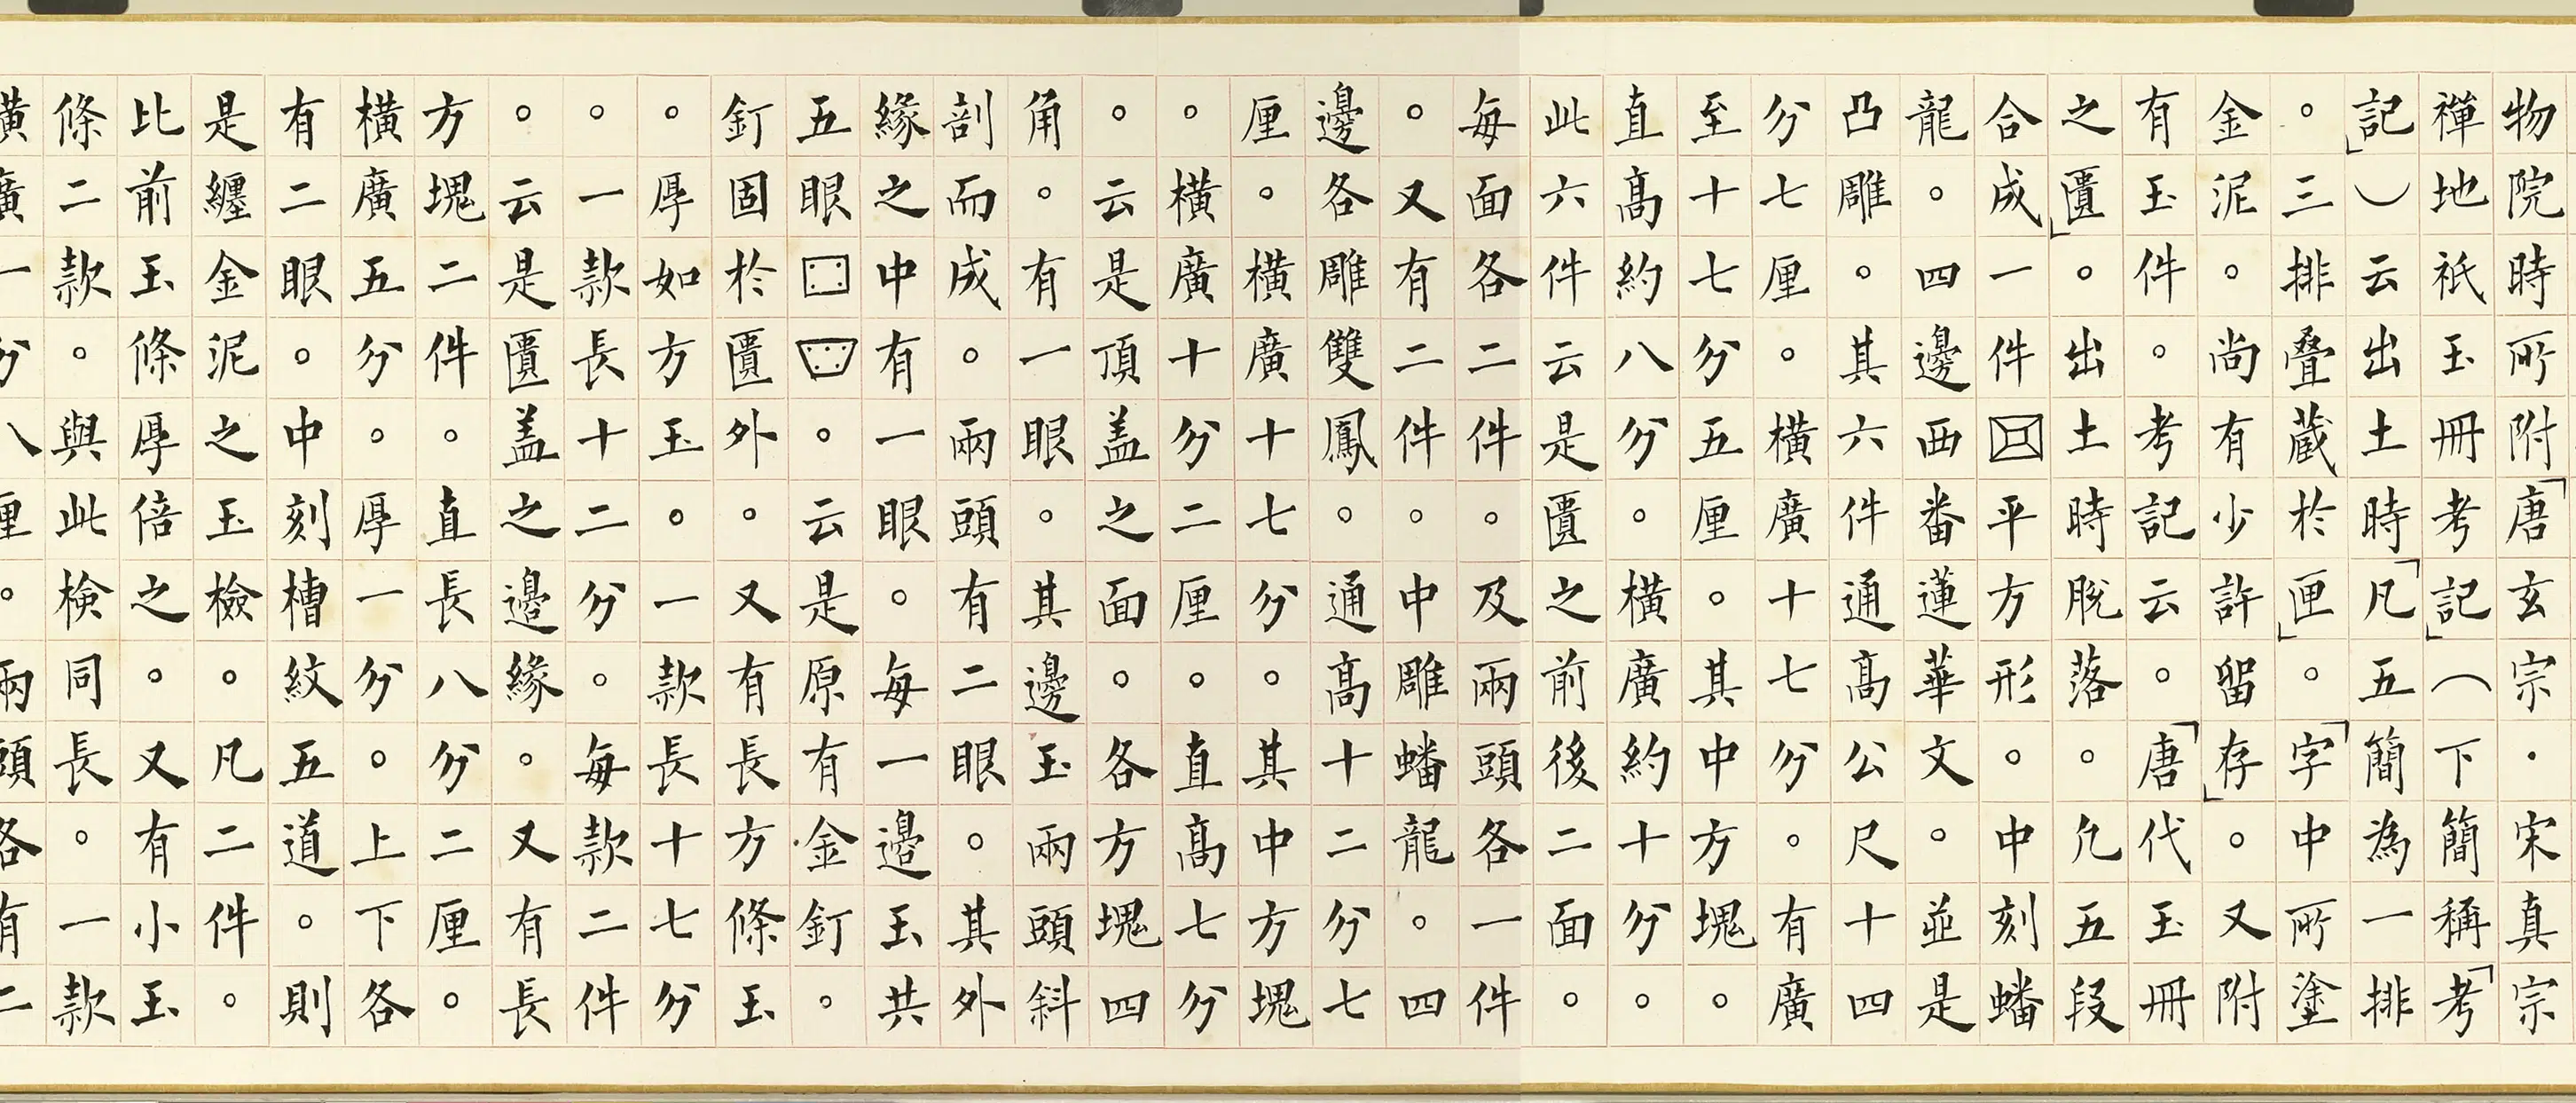 物院時所附「唐玄宗・宋真宗
禪地祇玉冊考」記（下簡稱「考
記」）云出土時「凡五簡為一排
。三排疊藏於匣」。「字中所塗
金泥。尚有少許留存」。又附
有玉件。考記云。「唐代玉冊
之匱」。出土時脫落。凢五段
合成一件平方形。中刻蟠
龍。四邊西番蓮華文。並是
凸雕。其六件通高公尺十四
分七厘。橫廣十七分。有廣
至十七分五厘。其中方塊。
直高約八分。橫廣約十分。
此六件云是匱之前後二面。
每面各二件。及兩頭各一件
。又有二件。中雕蟠龍。四
邊各雕雙鳳。通高十二分七
厘。橫廣十七分。其中方塊
。橫廣十分二厘。直高七分
。云是頂盖之面。各方塊四
角。有一眼。其邊玉兩頭斜
剖而成。兩頭有二眼。其外
緣之中有一眼。每一邊玉共
五眼。云是原有金釘。
釘固於匱外。又有長方條玉
。厚如方玉。一款長十七分
。一款長十二分。每款二件
。云是匱盖之邊緣。又有長
方塊二件。直長八分二厘。
橫廣五分。厚一分。上下各
有二眼。中刻槽紋五道。則
是纏金泥之玉檢。凡二件。
比前玉條厚倍之。又有小玉
條二款。與此検同長。一款
橫廣一分八厘。兩頭各有二